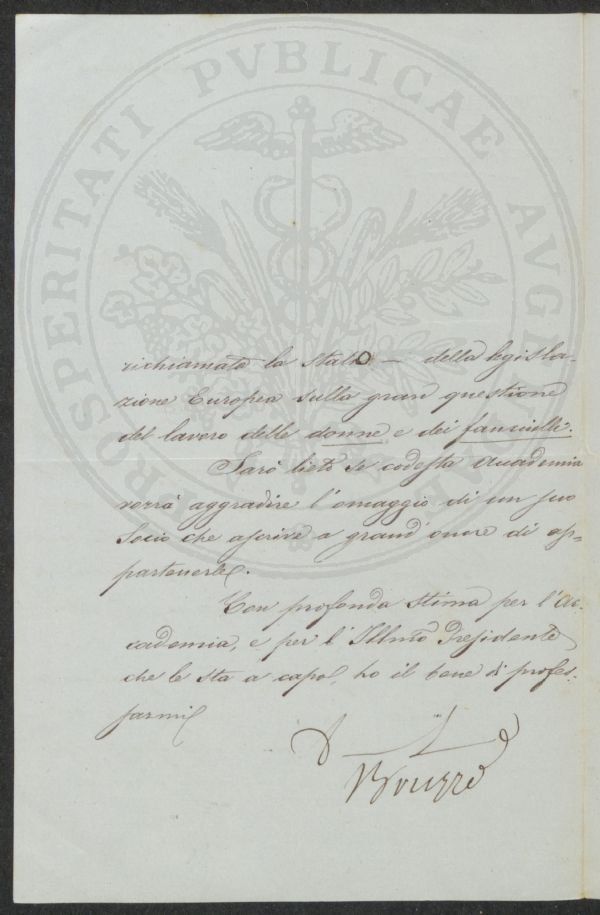 PROSPERITATI PVBLICAE AVGENDAE
richiamato lo stato — della legisla-
zione Europea sulla gran questione
del lavoro delle donne e dei fanciulli.
Sarò lieto se codesta Accademia
vorrà aggradire l'omaggio di un suo
Socio che ascrive a grand'onore di ap-
partenerle.
Con profonda stima per l'Ac-
cademia, e per l'Illmo Presidente
che le sta a capo, ho il bene di profes-
sarmi